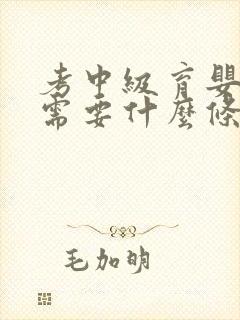 考中級育嬰
需要什麼條
毛加明